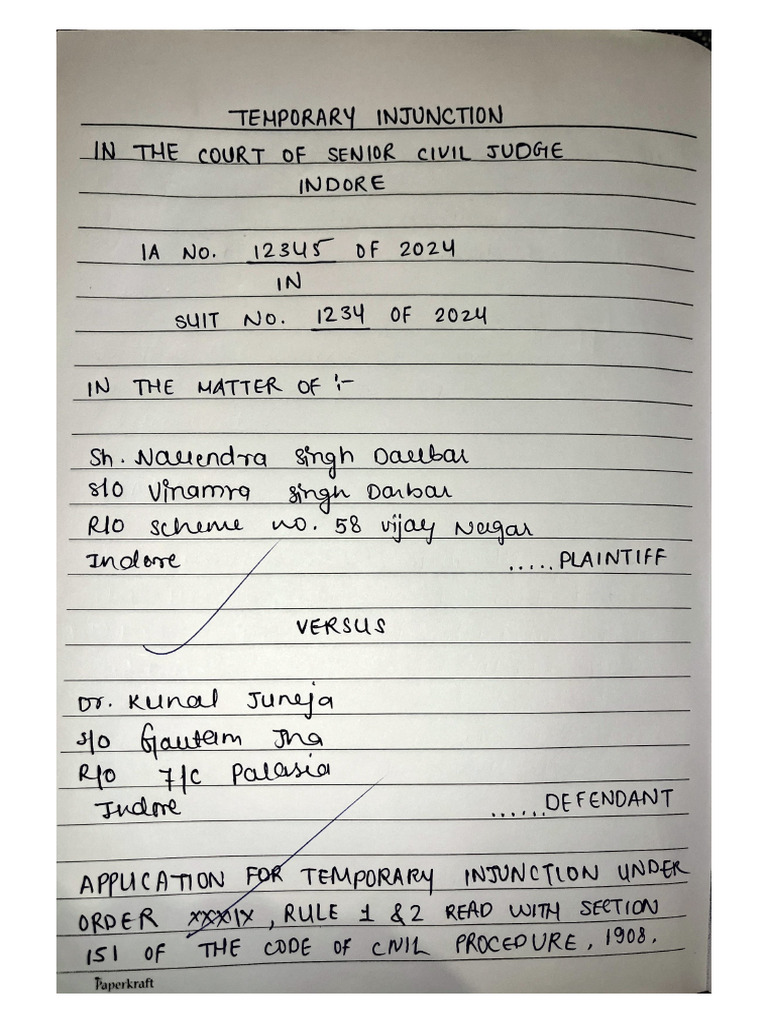 TEMPORARY INJUNCTION
IN THE COURT OF SENIOR CIVIL JUDGE
INDORE
IA NO. 12345 OF 2024
IN
SUIT NO. 1234 OF 2024
IN THE MATTER OF :-
Sh. Narendra Singh Darbar
S/O Vinamra Singh Darbar
R/O Scheme no. 58 Vijay Nagar
Indore ..... PLAINTIFF
VERSUS
Dr. Kunal Juneja
S/O Gautam Jha
R/O 7/C Palasia
Indore ...... DEFENDANT
APPLICATION FOR TEMPORARY INJUNCTION UNDER
ORDER XXXIX, RULE 1 & 2 READ WITH SECTION
151 OF THE CODE OF CIVIL PROCEDURE, 1908.
Paperkraft